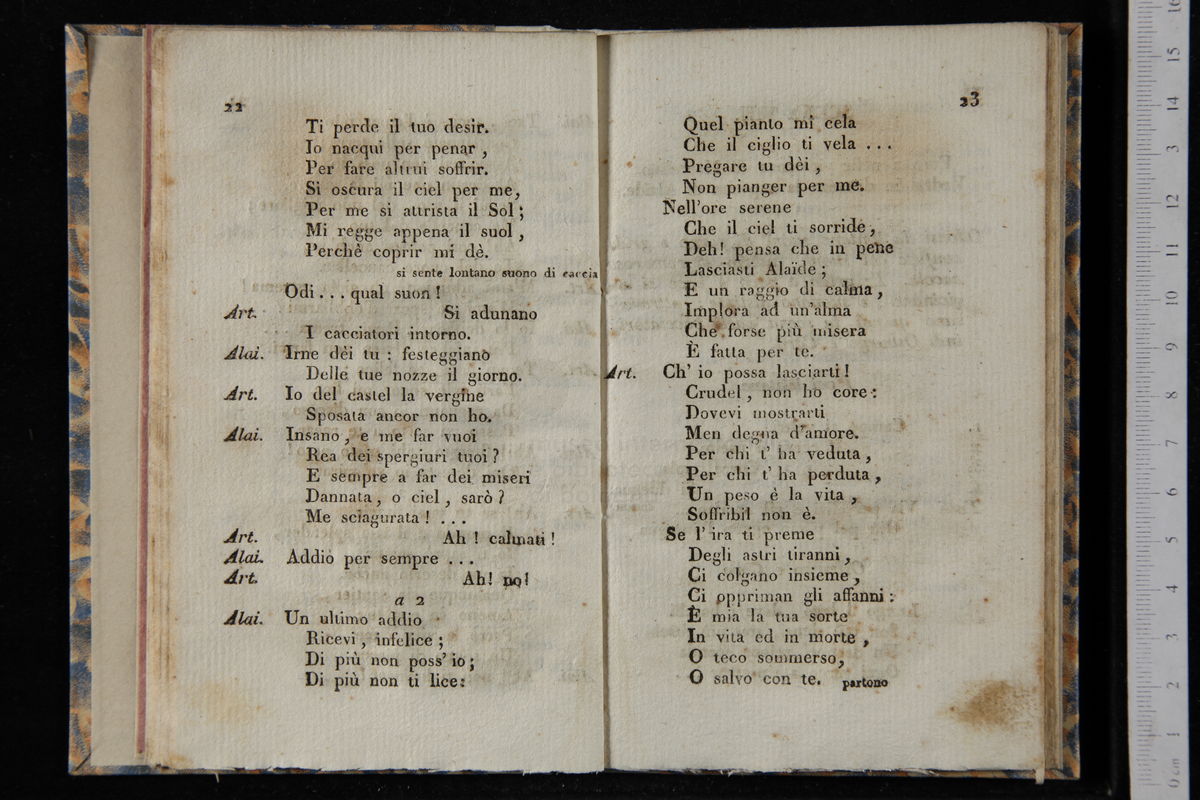 22
Ti perde il tuo desir.
Io nacqui per penar ,
Per fare altrui soffrir.
Si oscura il ciel per me,
Per me si attrista il Sol ;
Mi regge appena il suol ,
Perchè coprir mi dè.
si sente lontano suono di caccia
Odi . . . qual suon !
Art. Si adunano
I cacciatori intorno.
Alai. Irne dèi tu : festeggiano
Delle tue nozze il giorno.
Art. Io del castel la vergine
Sposata ancor non ho.
Alai. Insano , e me far vuoi
Rea dei spergiuri tuoi ?
E sempre a far dei miseri
Dannata , o ciel , sarò ?
Me sciagurata ! . . .
Art. Ah ! calmati !
Alai. Addio per sempre . . .
Art. Ah! no!
a 2
Alai. Un ultimo addio
Ricevi , infelice ;
Di più non poss' io ;
Di più non ti lice:
23
Quel pianto mi cela
Che il ciglio ti vela . . .
Pregare tu dèi ,
Non pianger per me.
Nell'ore serene
Che il ciel ti sorride ,
Deh! pensa che in pene
Lasciasti Alaide ;
E un raggio di calma ,
Implora ad un'alma
Che forse più misera
È fatta per te.
Art. Ch' io possa lasciarti !
Crudel , non ho core :
Dovevi mostrarti
Men degna d'amore.
Per chi t' ha veduta ,
Per chi t' ha perduta ,
Un peso è la vita ,
Soffribil non è.
Se l' ira ti preme
Degli astri tiranni ,
Ci colgano insieme ,
Ci oppriman gli affanni :
È mia la tua sorte
In vita ed in morte ,
O teco sommerso,
O salvo con te. partono
0 cm 1 2 3 4 5 6 7 8 9 10 11 12 13 14 15 16